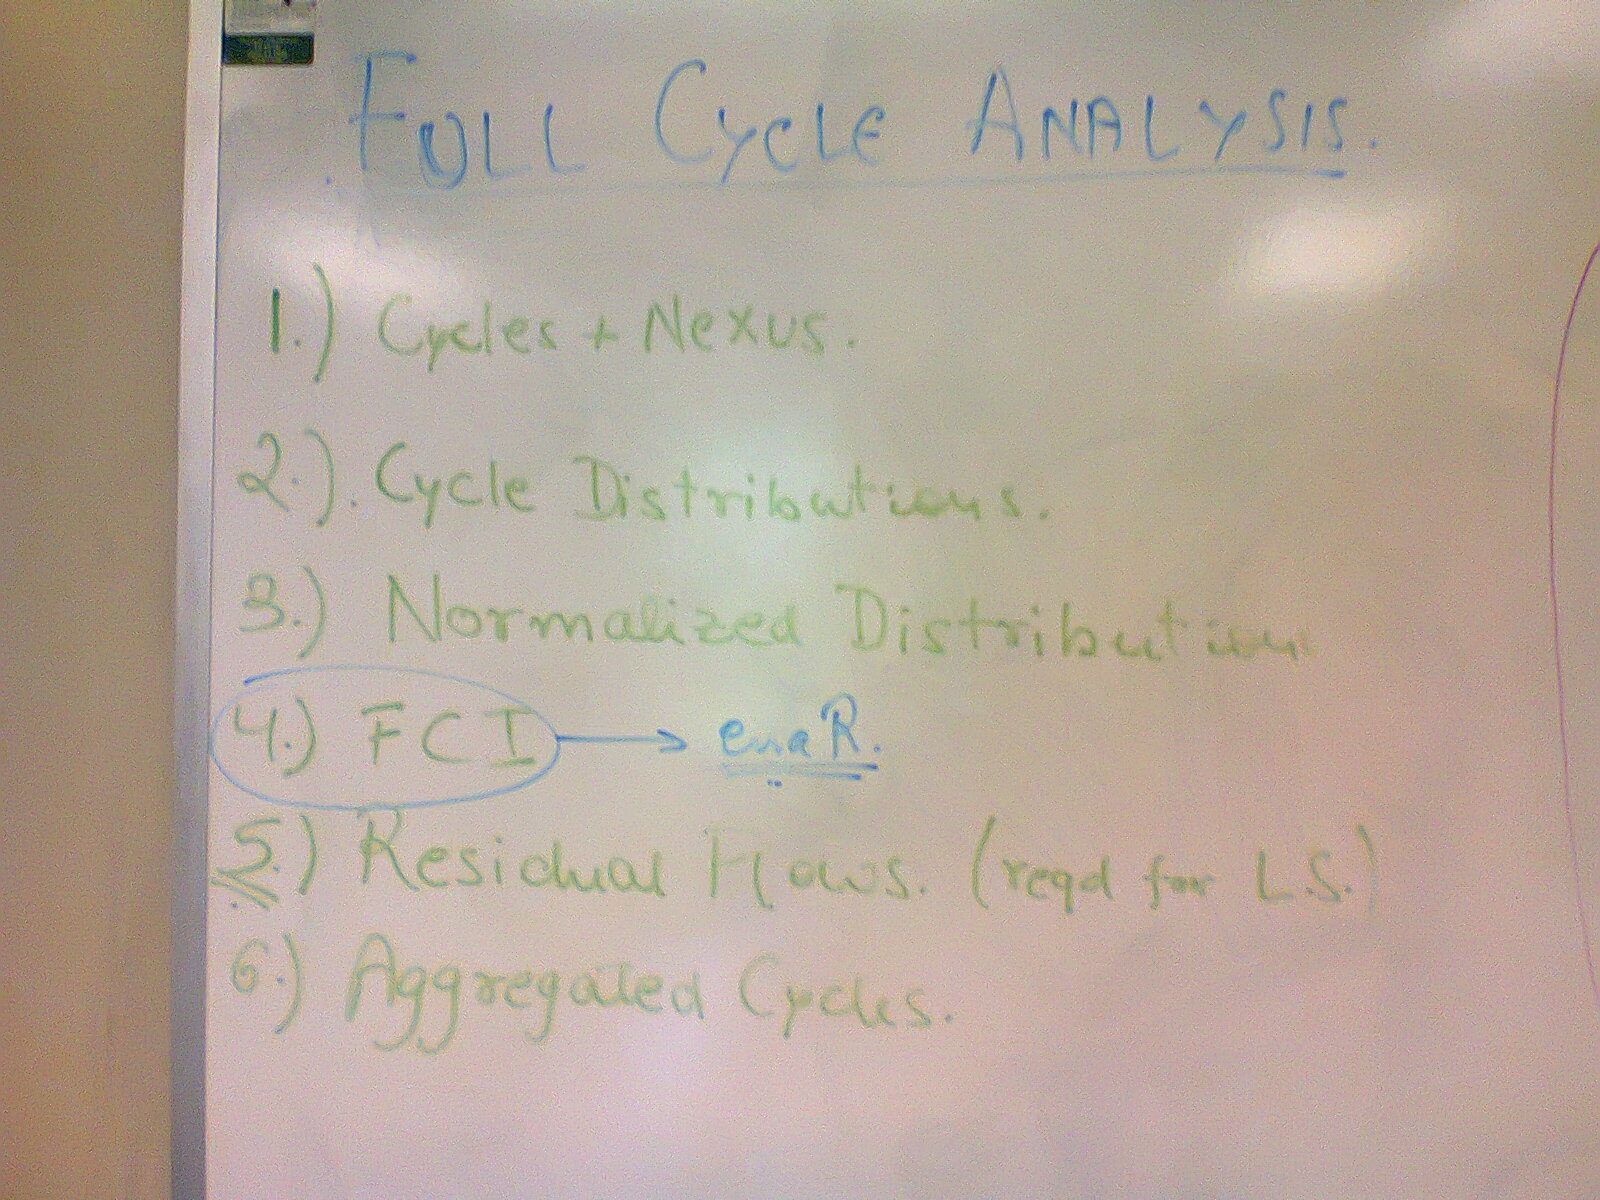 FULL CYCLE ANALYSIS.
1.) Cycles + Nexus.
2.). Cycle Distributions.
3.) Normalized Distribution
4.) FCI → enaR.
5.) Residual Flows. (reqd for L.S.)
6.) Aggregated Cycles.